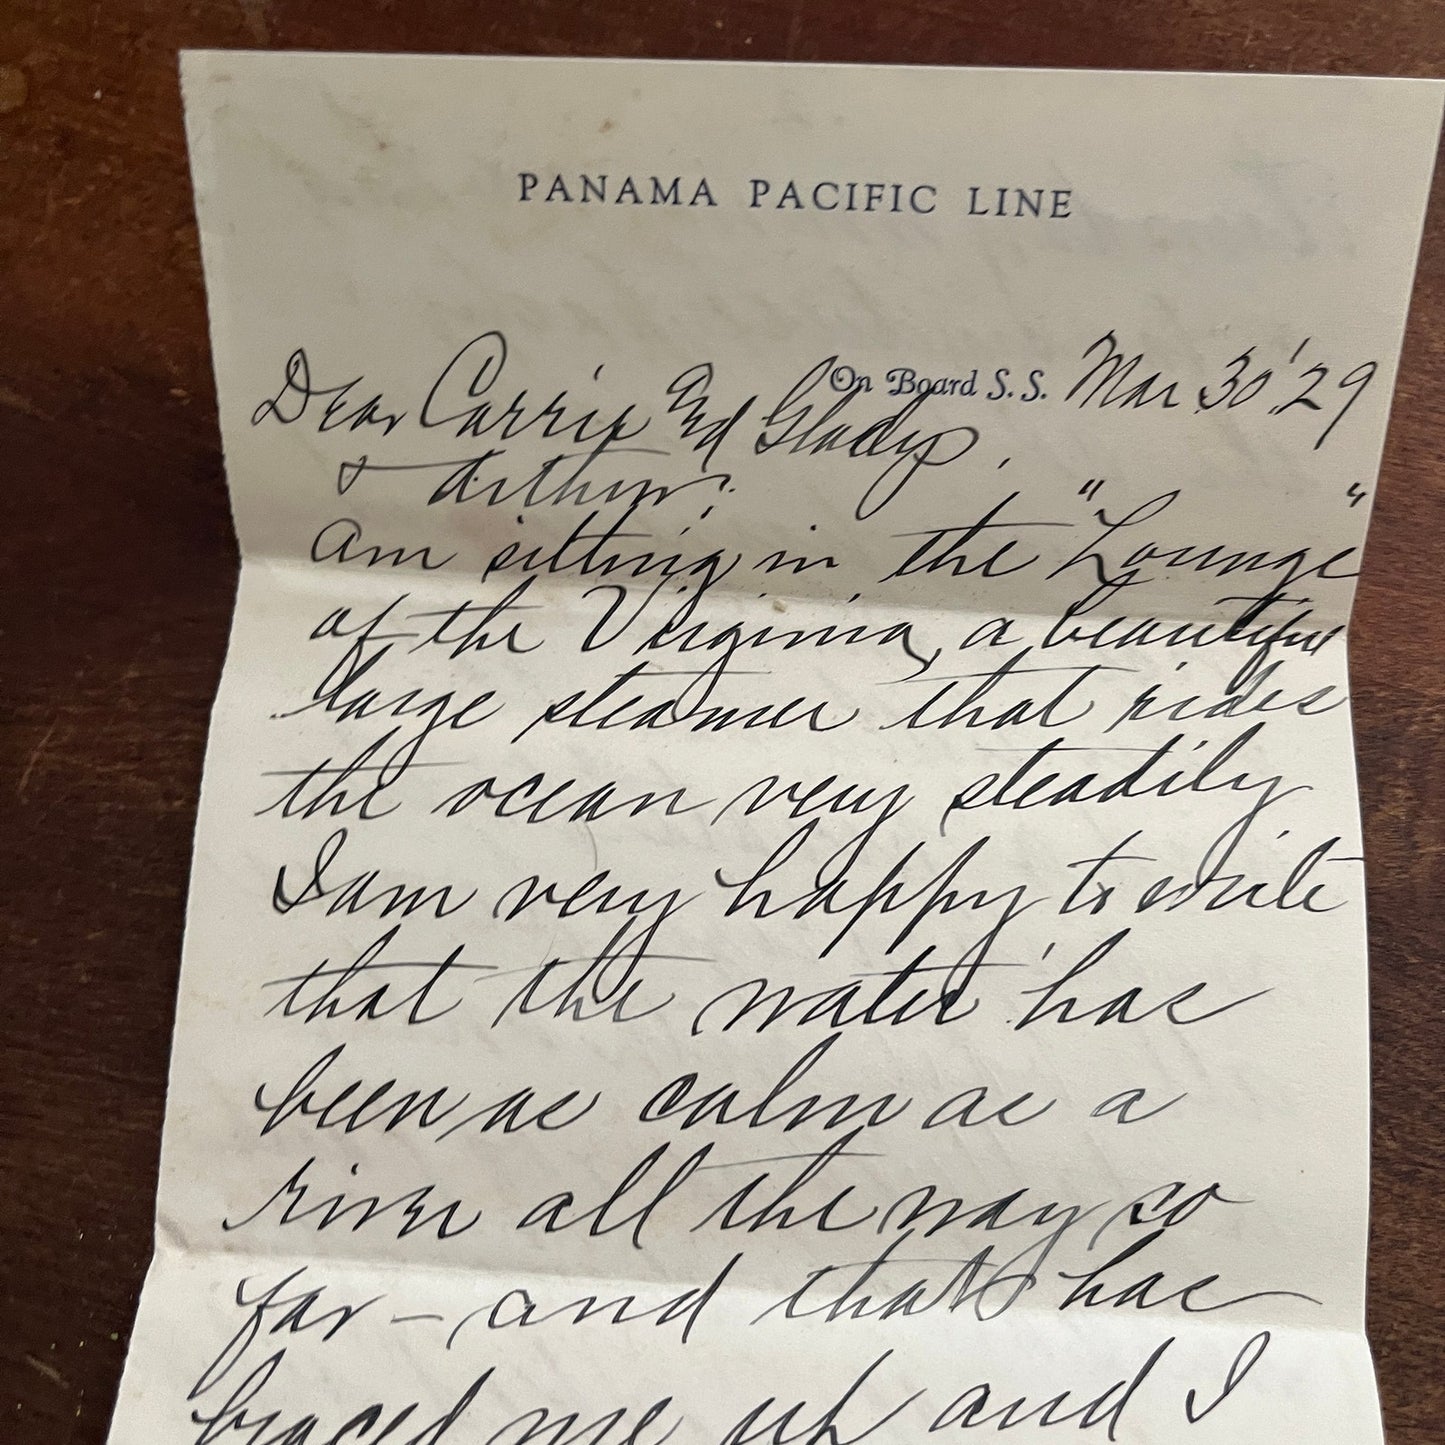 PANAMA PACIFIC LINE
On Board S.S. Mar 30 '29
Dear Carrie Ed Gladys,
& Arthur:
Am sitting in the "Lounge"
of the Virginia, a beautiful
large steamer that rides
the ocean very steadily.
I am very happy to write
that the water has
been as calm as a
river all the way so
far — and that has
braced me up and I